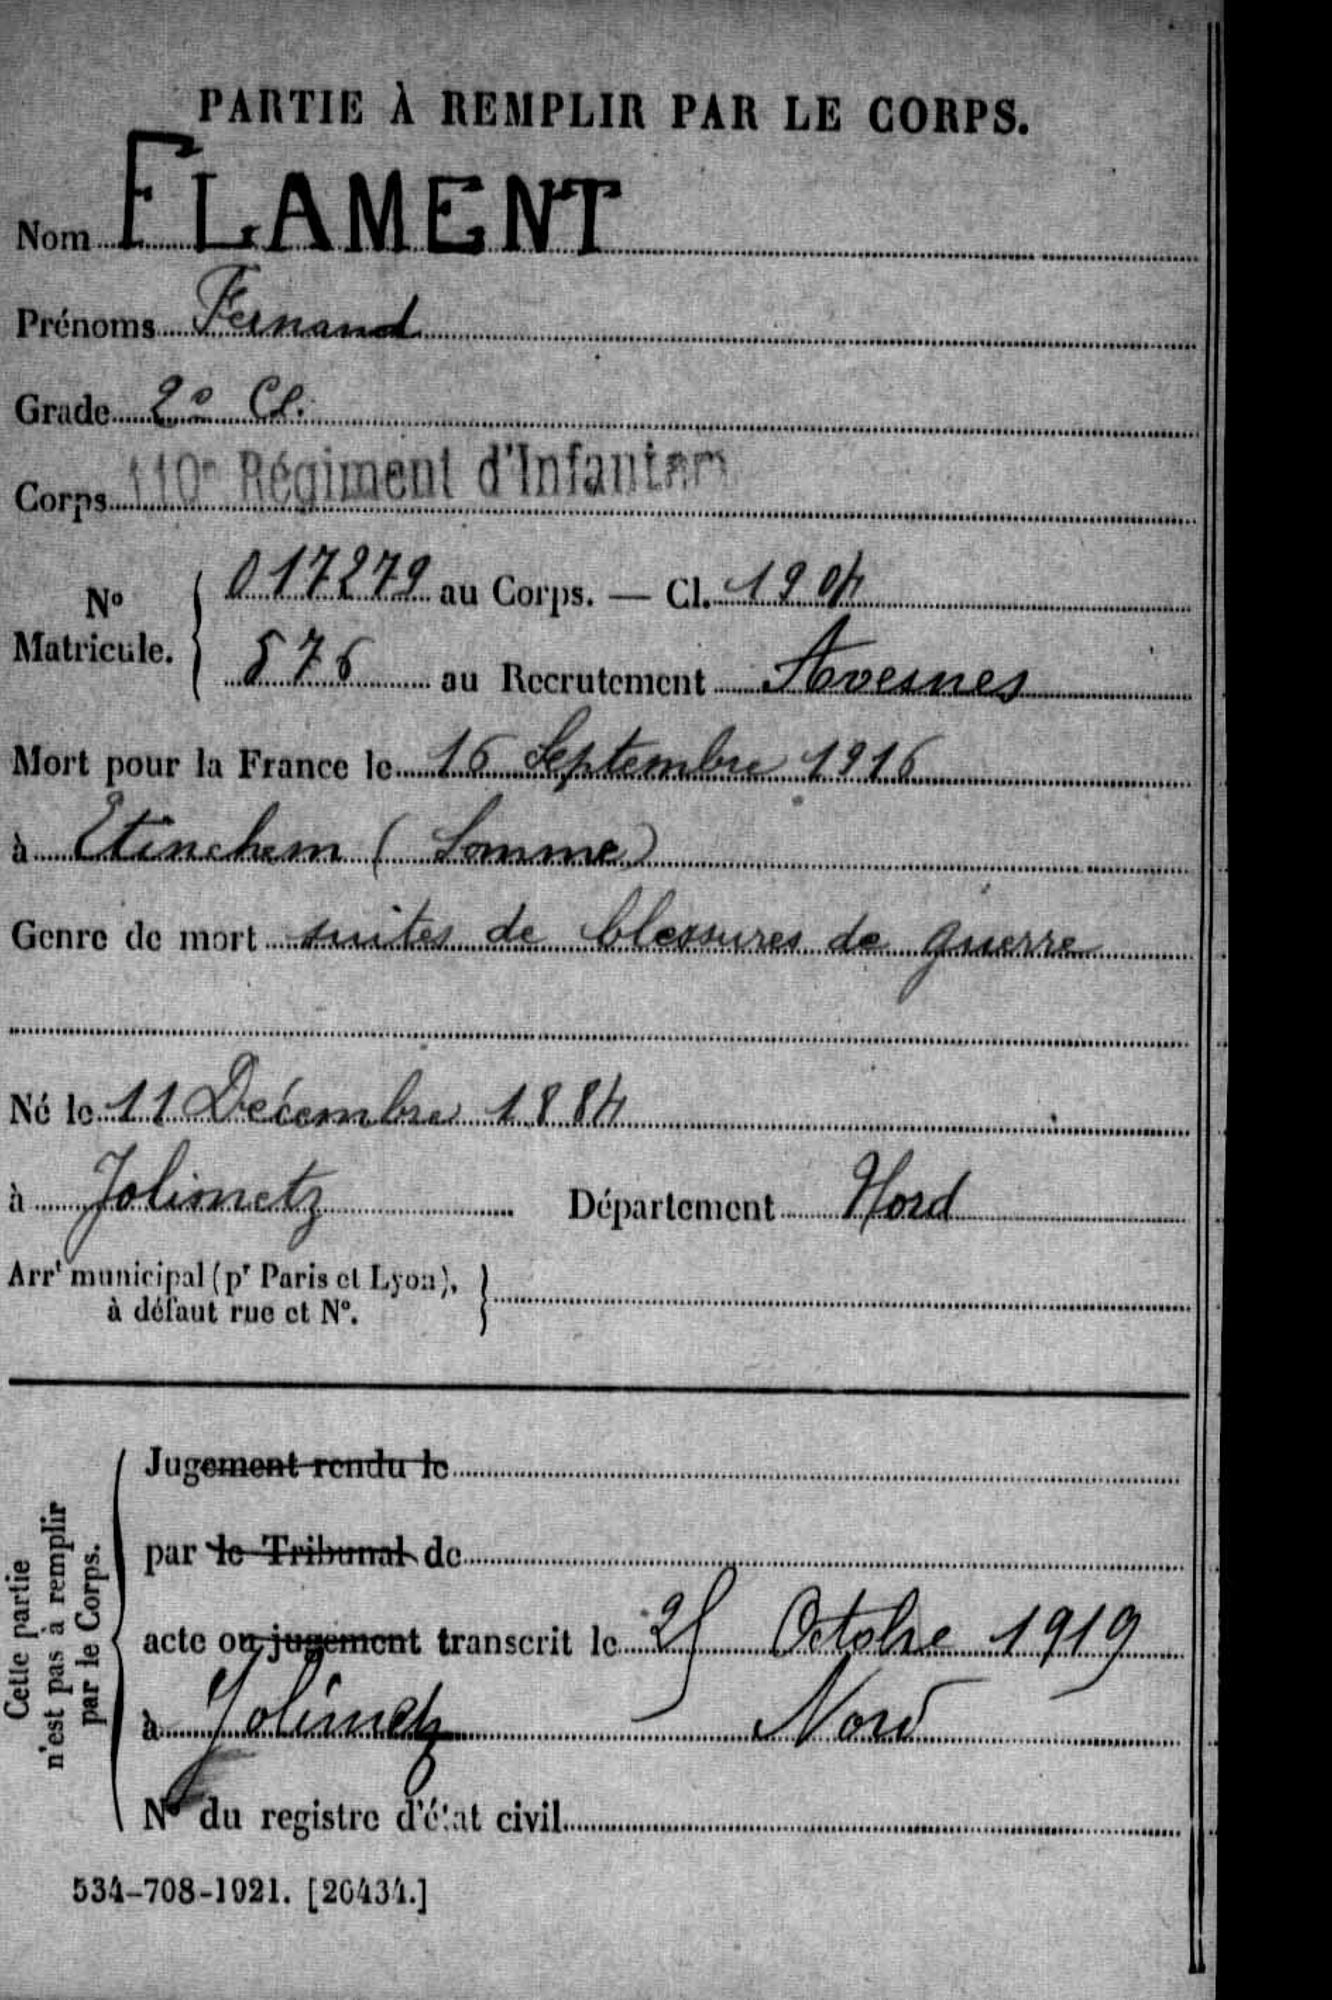 PARTIE À REMPLIR PAR LE CORPS.
Nom FLAMENT
Prénoms Fernand
Grade 2e Cl.
Corps 110e Régiment d'Infanterie
No Matricule. 017279 au Corps. — Cl. 1904
576 au Recrutement Avesnes
Mort pour la France le 16 Septembre 1916
à Etinehem (Somme)
Genre de mort suites de blessures de guerre
Né le 11 Décembre 1884
à Jolimetz Département Nord
Arrt municipal (pr Paris et Lyon),
à défaut rue et No.
Cette partie
n'est pas à remplir
par le Corps.
Jugement rendu le
par le Tribunal de
acte ou jugement transcrit le Octobre 1919
à Jolimetz Nord
No du registre d'état civil
534-708-1921. [20434.]